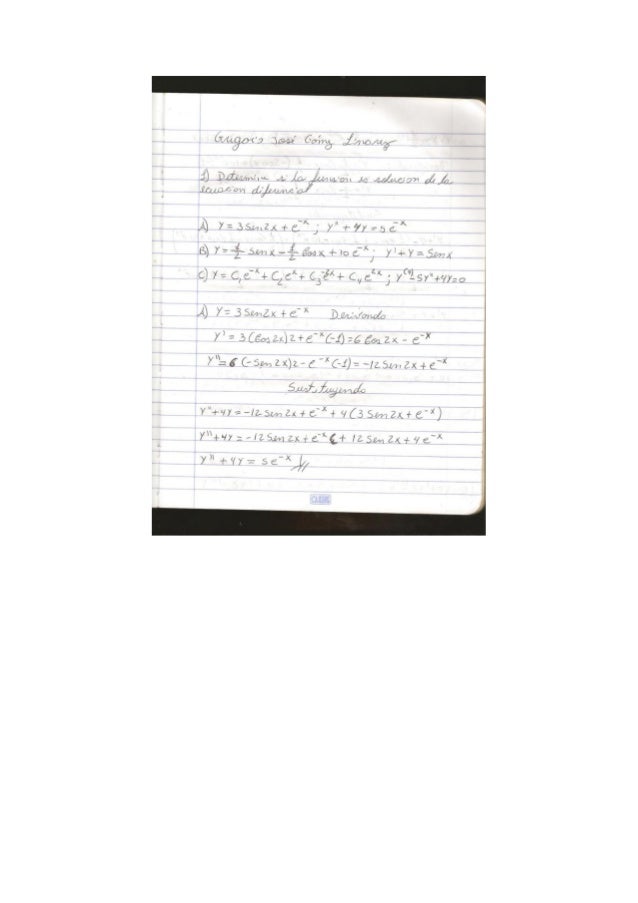 Grigoris José Gómz Linarez
1) Determine si la función es solución de la
ecuacion diferencial
A) Y = 3 Sen2x + e^-x ; Y'' + 4Y = 5e^-x
B) Y = 1/2 Senx - 1/2 Cosx + 10e^-x ; Y' + Y = Senx
C) Y = C₁e^-x + C₂e^x + C₃e^-2x + C₄e^2x ; Y^(4) - 5Y'' + 4Y = 0
A) Y = 3 Sen2x + e^-x Derivando
Y' = 3(Cos2x)2 + e^-x(-1) = 6Cos2x - e^-x
Y'' = 6(-Sen2x)2 - e^-x(-1) = -12Sen2x + e^-x
Sustituyendo
Y'' + 4Y = -12Sen2x + e^-x + 4(3Sen2x + e^-x)
Y'' + 4Y = -12Sen2x + e^-x + 12Sen2x + 4e^-x
Y'' + 4Y = 5e^-x